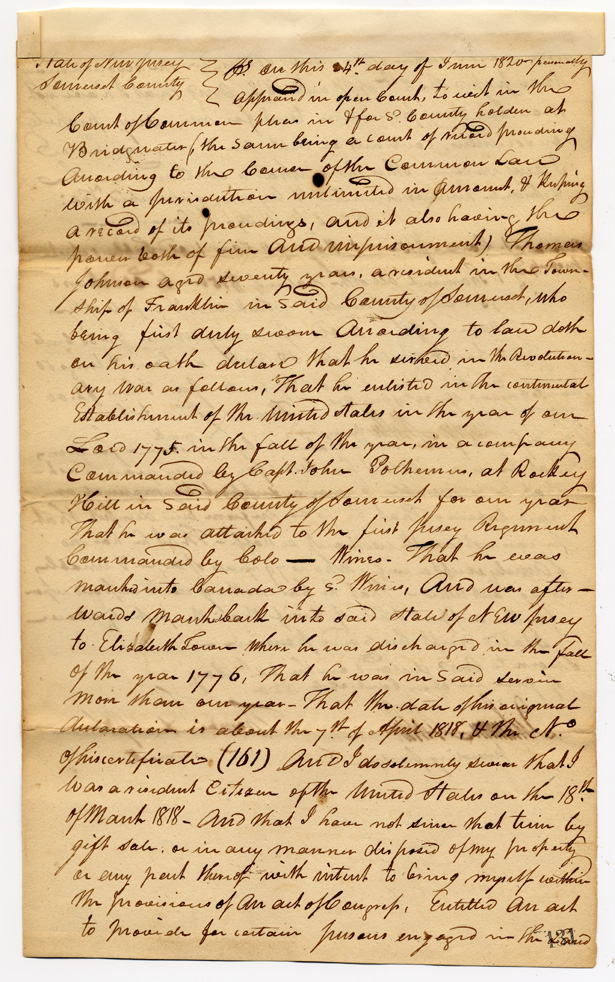 State of New Jersey
Somerset County } Ss. On this 24th. day of June 1820 personally
appeared in open Court, to wit in the
Court of Common pleas in & for Sd. County holden at
Bridgwater (the Same being a court of record proceeding
According to the Course of the Common Law
with a jurisdiction unlimited in Amount, & keeping
a record of its proceedings, and it also having the
power both of fine And imprisonment) Thomas
Johnson aged seventy years, a resident in the Town-
ship of Franklin in Said County of Somerset, who
being first duly sworn According to law doth
on his oath declare that he served in the Revolution-
ary War as follows, That he enlisted in the continental
Establishment of the United States in the year of our
Lord 1775. in the fall of the year, in a company
Commanded by Capt. John Polhemus, at Rockey
Hill in Said County of Somerset for one year
That he was attached to the first Jersey Regiment
Commanded by Colo — Wines. That he was
marched into Canada by Sd. Wines, And was after-
wards march back into said State of New Jersey
to Elizabeth Town where he was discharged in the fall
of the year 1776, That he was in Said service
more than one year - That the date of his original
declaration is about the 7th of April 1818, & the No.
of his certificate (161) And I do solemnly swear that I
was a resident Citizen of the United States on the 18th.
of March 1818 - And that I have not since that time by
gift sale. or in any manner disposed of my property
or any part thereof with intent to bring myself within
the provisions of An act of Congress, Entitled An act
to provide for certain persons engaged in the Land
131